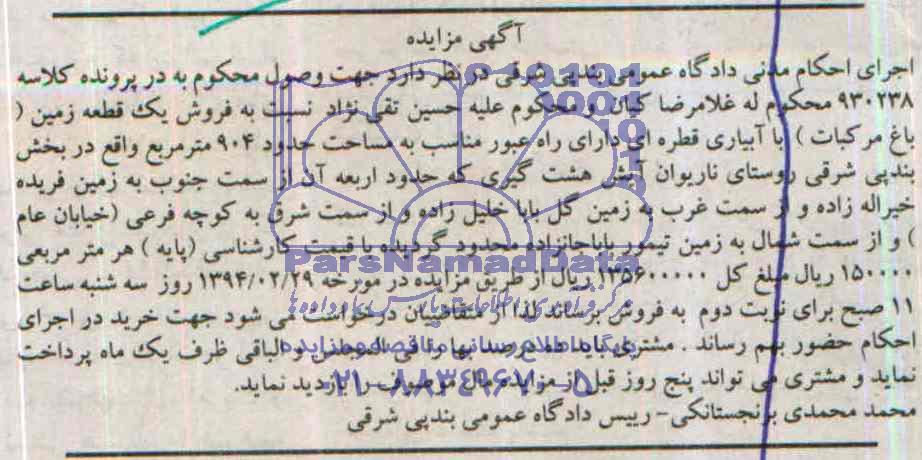 آگهی مزایده
اجرای احکام مدنی دادگاه عمومی بندپی شرقی در نظر دارد جهت وصول محکوم به در پرونده کلاسه
۹۳۰۲۳۸ محکوم له غلامرضا کیان و محکوم علیه حسین تقی نژاد نسبت به فروش یک قطعه زمین (
باغ مرکبات ) با آبیاری قطره ای دارای راه عبور مناسب به مساحت حدود ۹۰۴ مترمربع واقع در بخش
بندپی شرقی روستای ناریوان آیش هشت گیری که حدود اربعه آن از سمت جنوب به زمین فریده
خیراله زاده و از سمت غرب به زمین گل بابا خلیل زاده و از سمت شرق به کوچه فرعی (خیابان عام
) و از سمت شمال به زمین تیمور باباجانزاده محدود گردیده با قیمت کارشناسی (پایه ) هر متر مربعی
۱۵۰۰۰۰ ریال مبلغ کل ۱۳۵۶۰۰۰۰۰ ریال از طریق مزایده در مورخه ۱۳۹۴/۰۲/۲۹ روز سه شنبه ساعت
۱۱ صبح برای نوبت دوم به فروش برساند لذا از متقاضیان درخواست می شود جهت خرید در اجرای
احکام حضور بهم رساند . مشتری باید ده درصد بها را فی المجلس و الباقی ظرف یک ماه پرداخت
نماید و مشتری می تواند پنج روز قبل از مزایده مال موصوف را بازدید نماید.
محمد محمدی برنجستانکی - رییس دادگاه عمومی بندپی شرقی
ParsNamadData
۰۲۱-۸۸۳۴۹۶۷۰-۵